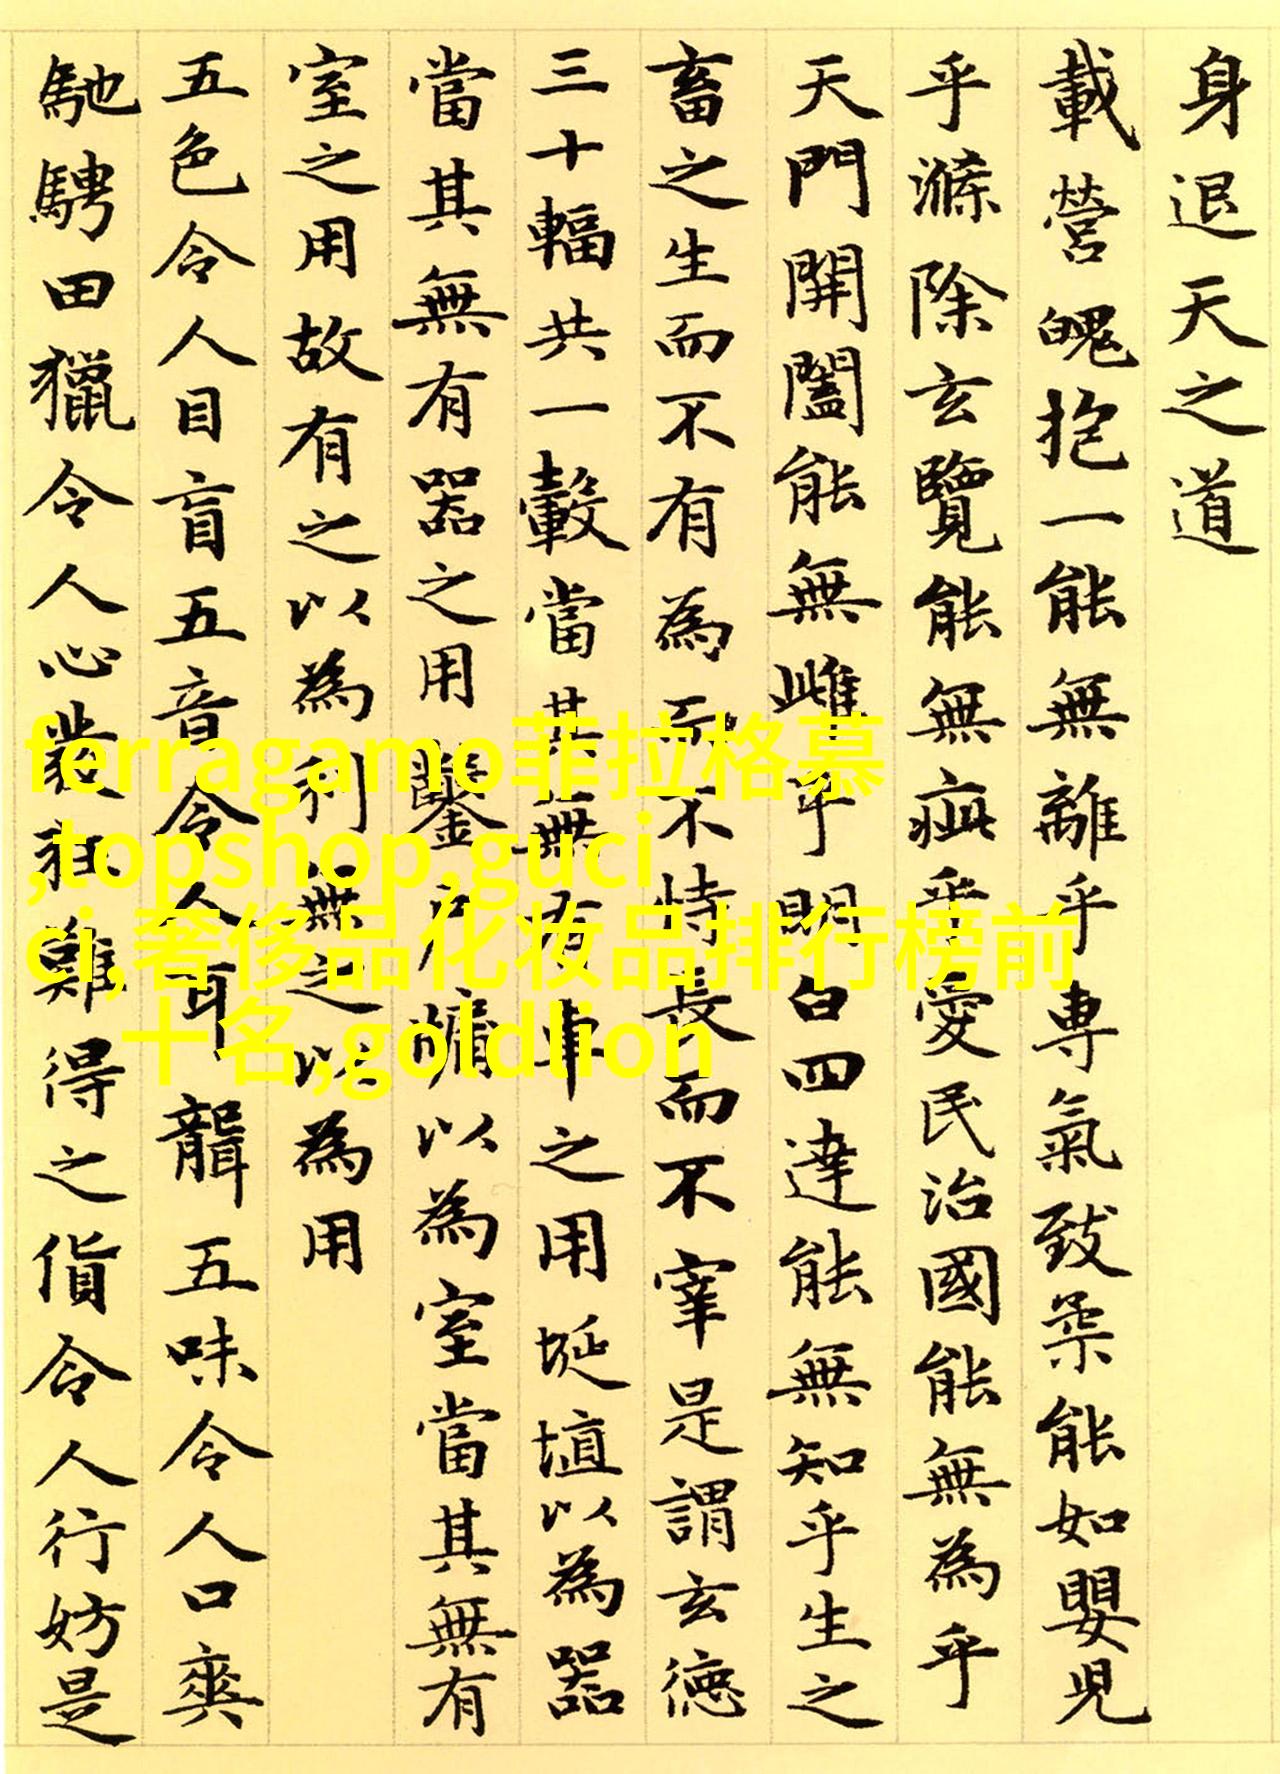 身退天之道
載營魄抱一能無離乎專氣致柔能如嬰兒
乎滌除玄覽能無疵乎愛民治國能無為乎
天門開闔能無雌乎明白四達能無知乎生之
畜之生而不有為而不恃長而不宰是謂玄德
三十輻共一轂當其無有車之用埏埴以為器
當其無有器之用鑿戶牖以為室當其無有
室之用故有之以為利無之以為用
五色令人目盲五音令人耳聾五味令人口爽
馳騁田獵令人心發狂難得之貨令人行妨是
ferragamo菲拉格慕
,topshop,guci
ci,奢侈品化妆品排行榜前
十名,goldlion